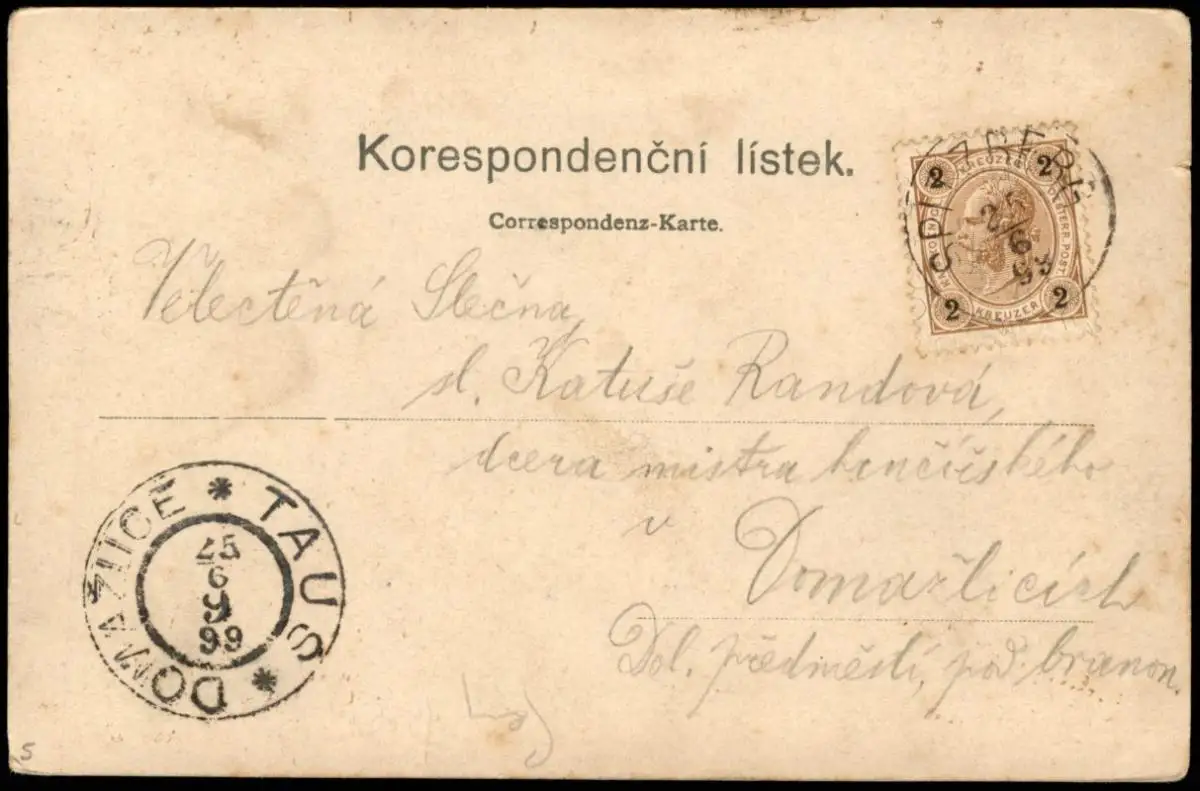 Korespondenční lístek.
Correspondenz-Karte.
SPITZBERG
25
6
99
2 KREUZER 2
2 KREUZER 2
Velectěná Slečna,
sl. Katuše Randová,
dcera mistra hrnčířského
v
Domažlicích
Dol. předměstí, pod branou.
DOMAŽLICE * TAUS *
25
6
99
5